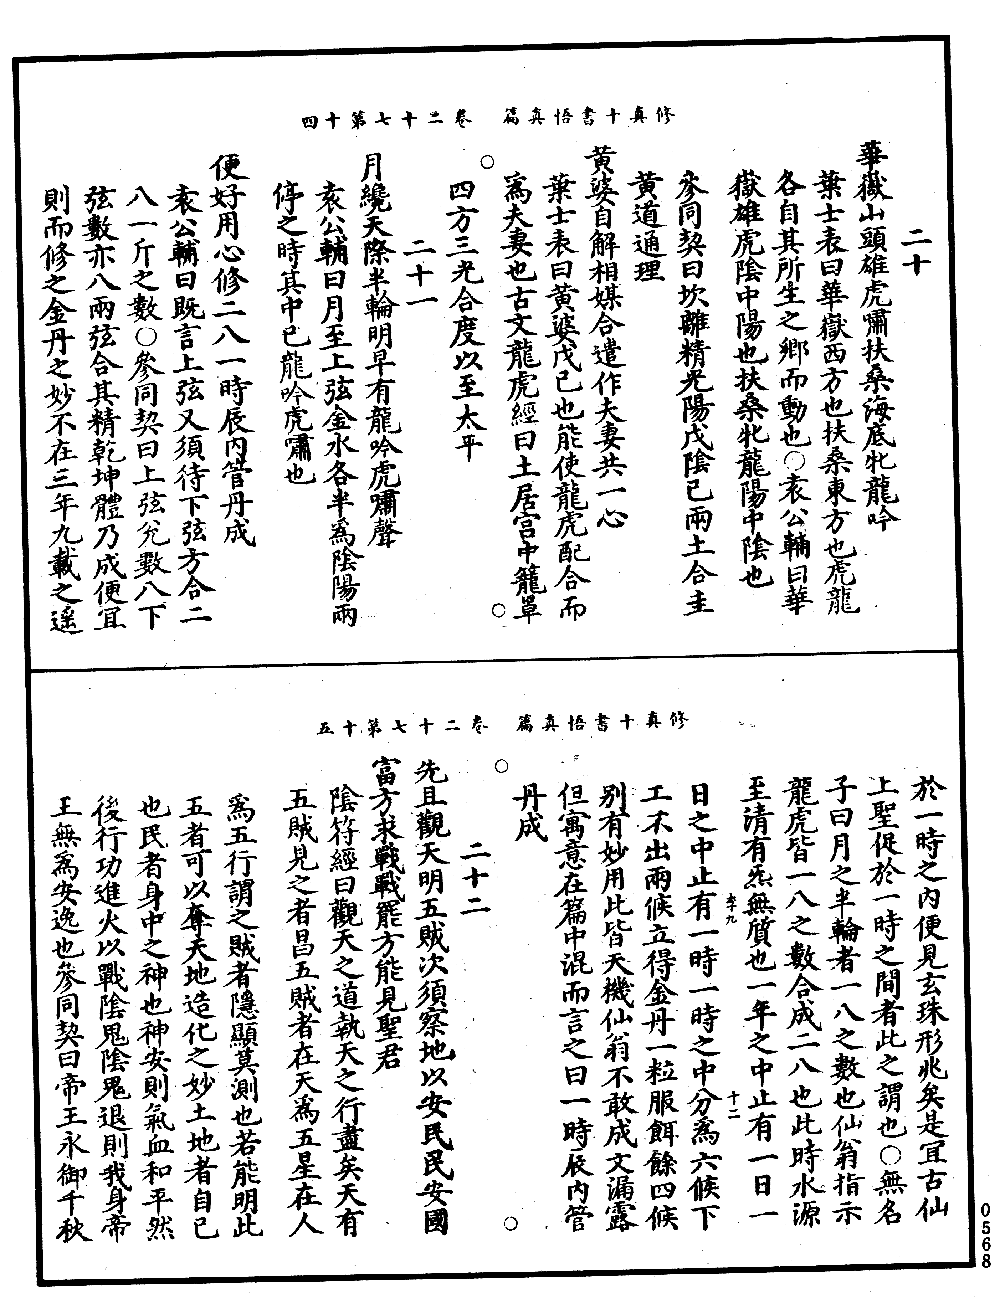 修真十書悟真篇　卷二十七第十四
二十
華嶽山頭雄虎嘯扶桑海底牝龍吟
葉士表曰華嶽西方也扶桑東方也虎龍
各自其所生之鄉而動也○袁公輔曰華
嶽雄虎陰中陽也扶桑牝龍陽中陰也
參同契曰坎離精光陽戊陰己兩土合圭
黃道通理
黃婆自解相媒合遣作夫妻共一心
葉士表曰黃婆戊己也能使龍虎配合而
爲夫妻也古文龍虎經曰土居宮中籠罩
四方三光合度以至太平
二十一
月纔天際半輪明早有龍吟虎嘯聲
袁公輔曰月至上弦金水各半爲陰陽兩
停之時其中已龍吟虎嘯也
便好用心修二八一時辰內管丹成
袁公輔曰既言上弦又須待下弦方合二
八一斤之數○參同契曰上弦兌數八下
弦數亦八兩弦合其精乾坤體乃成便宜
則而修之金丹之妙不在三年九載之遙
修真十書悟真篇　卷二十七第十五
於一時之內便見玄珠形兆矣是宜古仙
上聖促於一時之間者此之謂也○無名
子曰月之半輪者一八之數也仙翁指示
龍虎皆一八之數合成二八也此時水源
至清有炁無質也一年之中止有一日一
日之中止有一時一時之中分爲六候下
工不出兩候立得金丹一粒服餌餘四候
別有妙用此皆天機仙翁不敢成文漏露
但寓意在篇中混而言之曰一時辰內管
丹成
二十二
先且觀天明五賊次須察地以安民民安國
富方求戰戰罷方能見聖君
陰符經曰觀天之道執天之行盡矣天有
五賊見之者昌五賊者在天爲五星在人
爲五行謂之賊者隱顯莫測也若能明此
五者可以奪天地造化之妙土地者自己
也民者身中之神也神安則氣血和平然
後行功進火以戰陰鬼陰鬼退則我身帝
王無爲安逸也參同契曰帝王永御千秋
李九
十二
0568